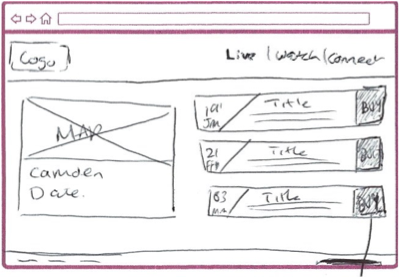 Logo
Live / Watch / Connect
MAP
Camden
Date.
19
Jan
Title
BUY
21
Title
BUY
03
Title
BUY